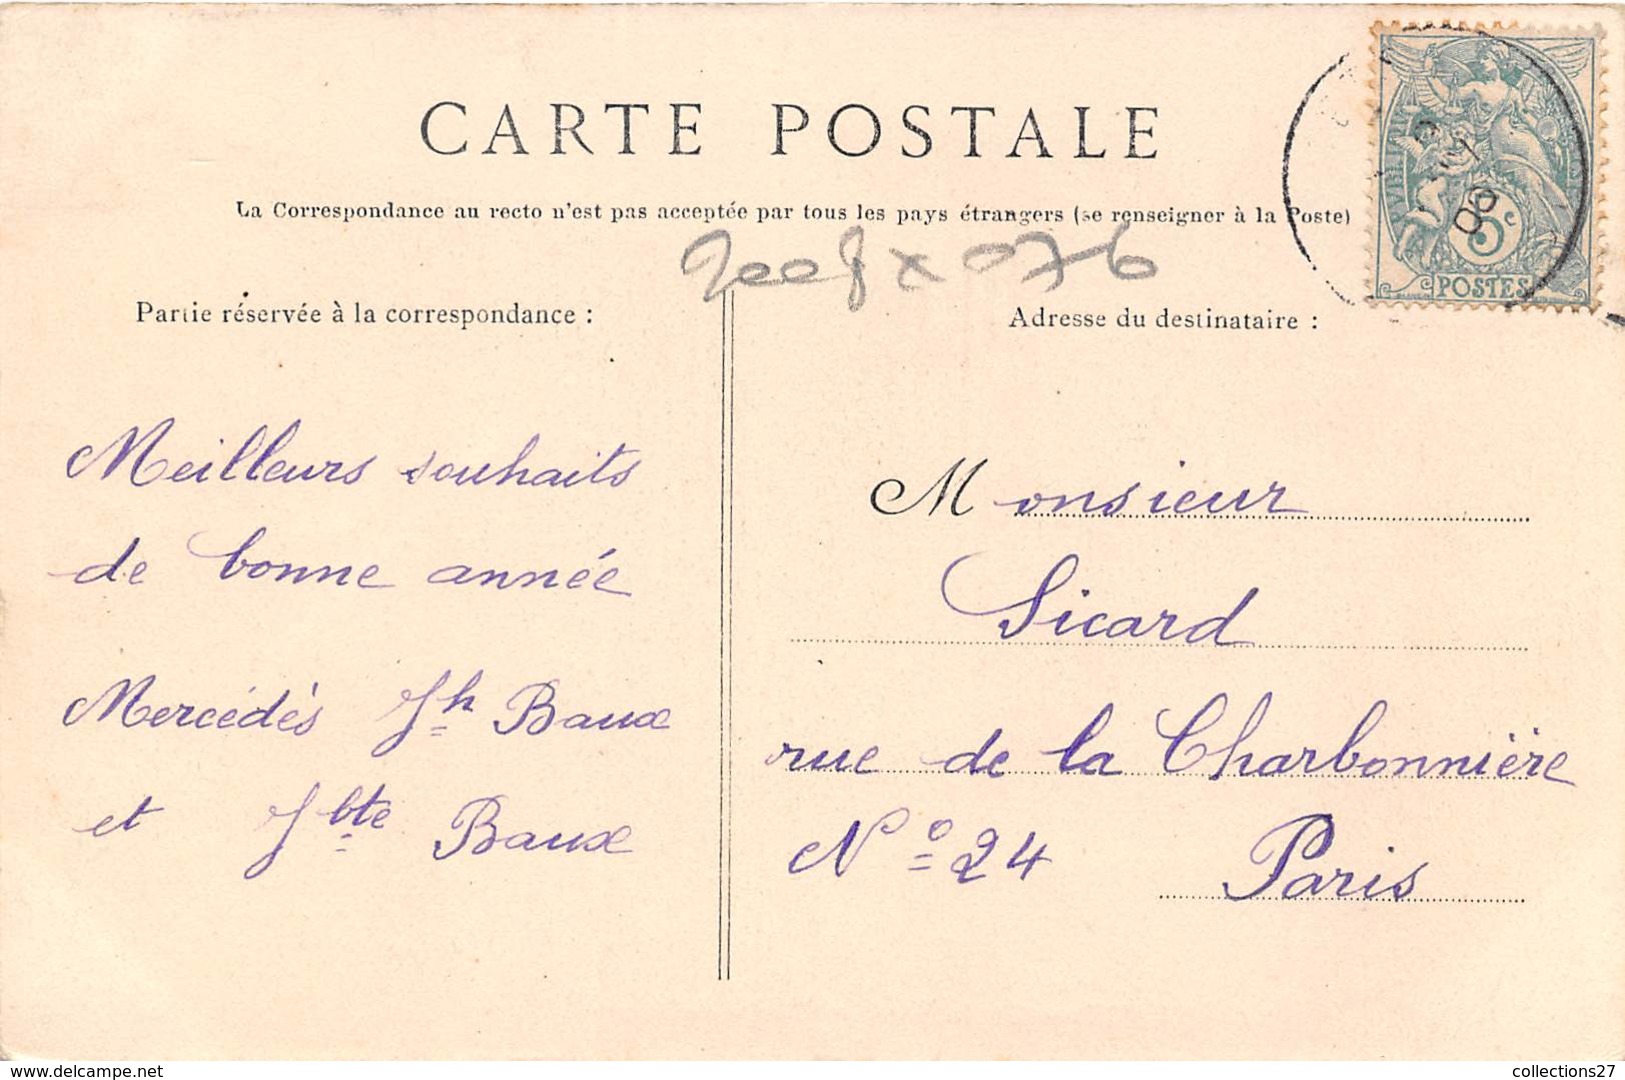 CARTE POSTALE
La Correspondance au recto n'est pas acceptée par tous les pays étrangers (se renseigner à la Poste)
Partie réservée à la correspondance :
Meilleurs souhaits
de bonne année
Mercédès Jh Baux
et Jbte Baux
Adresse du destinataire :
Monsieur
Sicard
rue de la Charbonnière
N° 24 Paris
5c
POSTES
06
www.delcampe.net
collections27